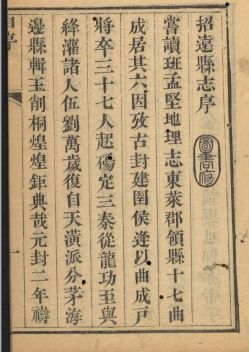 招遠縣志序
嘗讀班孟堅地理志東萊郡領縣十七曲
成居其六因攷古封建圉侯逢以曲成戸
將卒三十七人起碭定三秦從龍功至與
絳灌諸人伍劉萬歲復自天潢派分茅海
邊縣輯玉剖桐煌煌鉅典哉元封二年禱